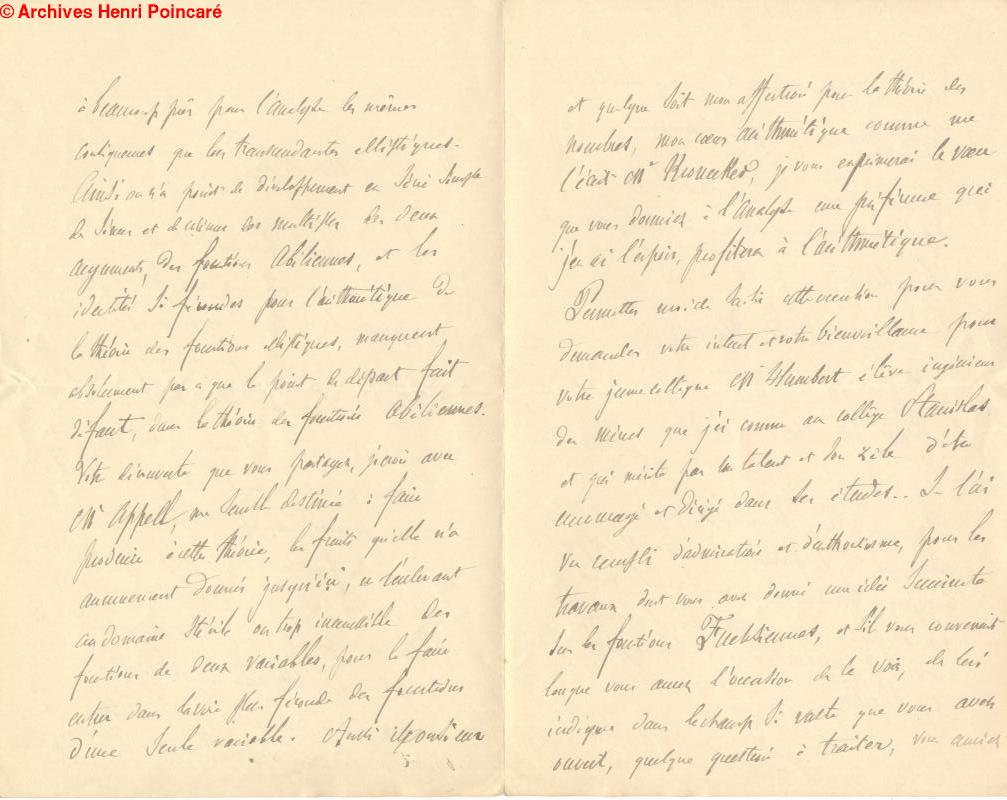 © Archives Henri Poincaré
à beaucoup près pour l'Analyse les mêmes
conséquences que les transcendantes elliptiques.
Ainsi on n'a point de développement en série simple
de Sinus et de cosinus des multiples des deux
arguments, des fonctions Abéliennes, et les
identités si fécondes pour l'arithmétique de
la théorie des fonctions elliptiques, manquent
absolument par a que le point de départ fait
défaut, dans la théorie des fonctions Abéliennes.
Votre découverte que vous partagez, je crois avec
Mr Appell, me semble destinée à faire
produire à cette théorie, les fruits qu'elle n'a
aucunement donnés jusqu'ici, en l'enlevant
au domaine stérile ou trop inaccessible des
fonctions de deux variables, pour la faire
entrer dans la voie plus féconde des fonctions
d'une seule variable. Aussi Monsieur
et quelque soit mon affection pour la théorie des
nombres, mon cœur arithmétique comme me
l'écrit Mr Kronecker, je vous exprimerai le vœu
que vous donniez à l'Analyse une préférence qui
j'en ai l'espoir, profitera à l'arithmétique.
Permettez moi de saisir cette occasion pour vous
demander votre intérêt et votre bienveillance pour
votre jeune collègue Mr Humbert élève ingénieur
des mines que j'ai connu au collège Stanislas
et qui mérite par son talent et son zèle d'être
encouragé et dirigé dans ses études.. Je l'ai
vu rempli d'admiration et d'enthousiasme, pour les
travaux dont vous avez donné une idée succincte
sur les fonctions Fuchsiennes, et s'il vous convenait
lorsque vous aurez l'occasion de le voir, de lui
indiquer dans le champ si vaste que vous avez
ouvert, quelque question à traiter, vous auriez